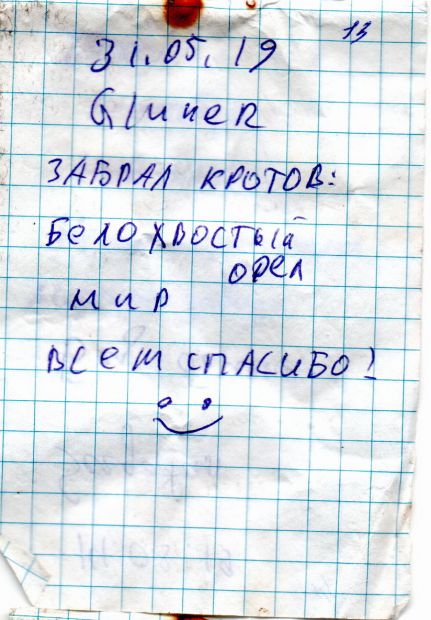 13
31.05.19
Glukek
ЗАБРАЛ КРОТОВ:
БЕЛОХВОСТЫЙ
ОРЕЛ
МИР
ВСЕМ СПАСИБО!